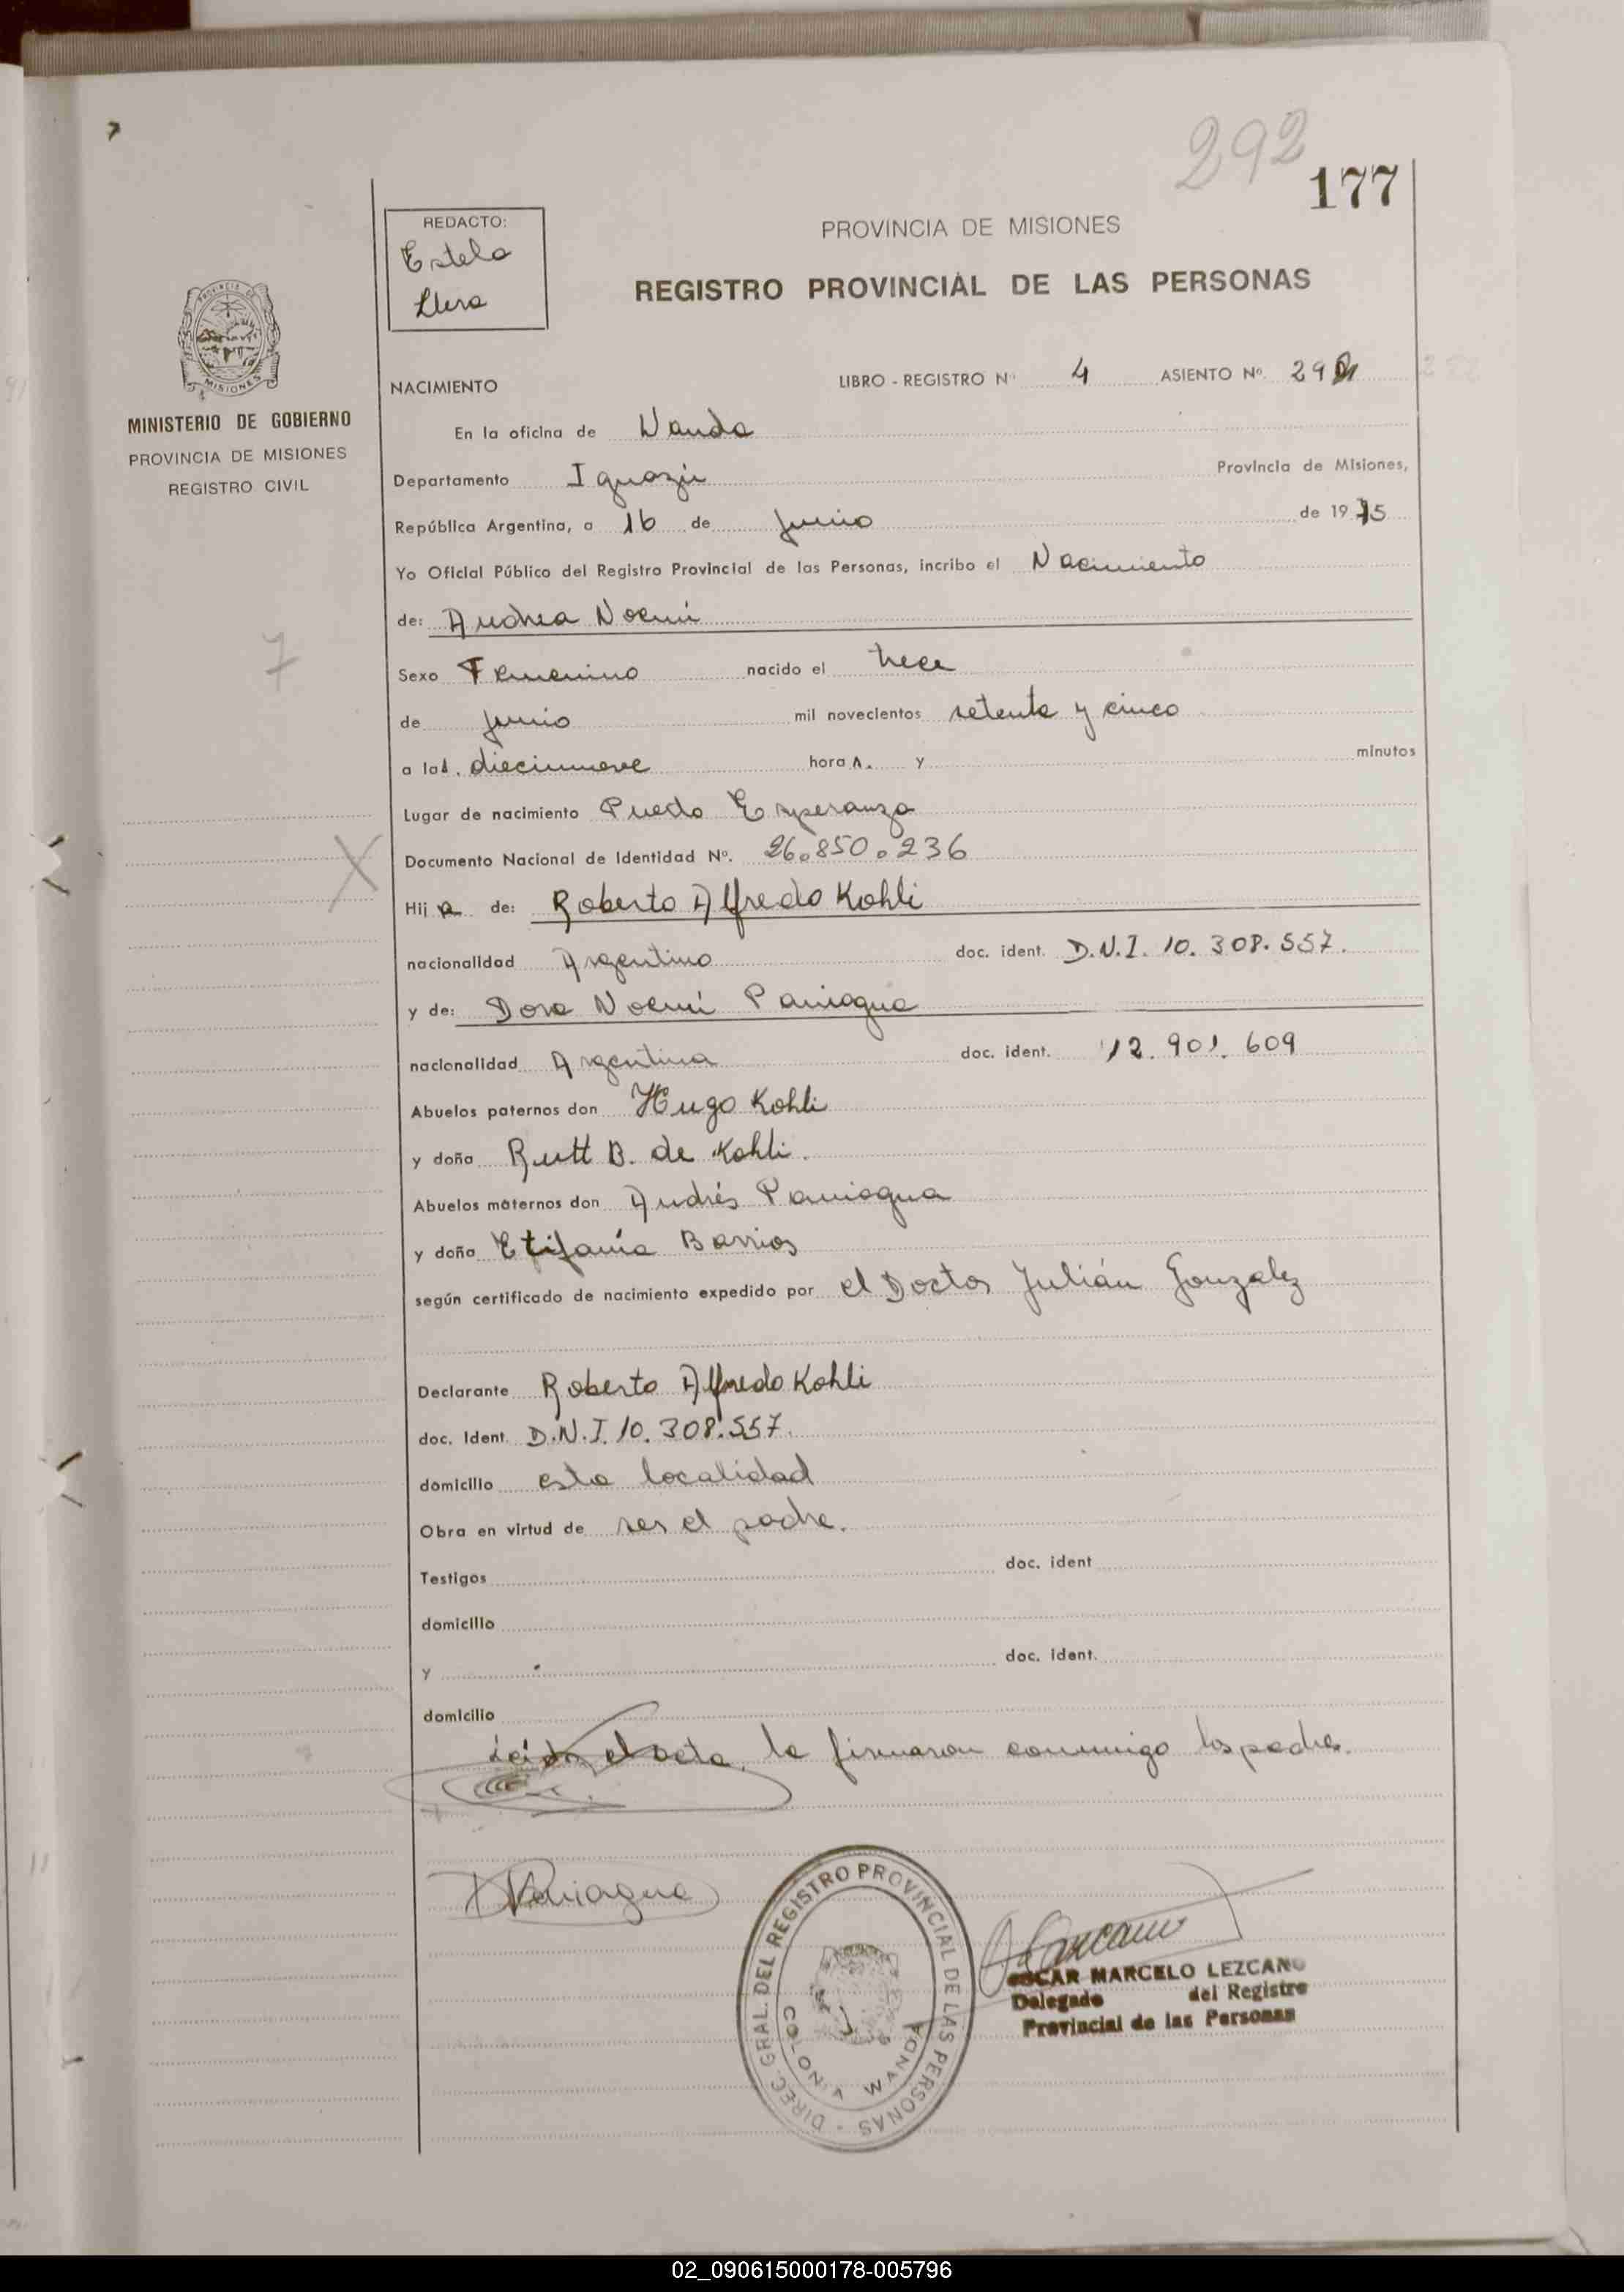 292
177
REDACTO:
Estela
PROVINCIA DE MISIONES
REGISTRO PROVINCIAL DE LAS PERSONAS
PROVINCIA DE
MISIONES
MINISTERIO DE GOBIERNO
PROVINCIA DE MISIONES
REGISTRO CIVIL
NACIMIENTO LIBRO - REGISTRO Nº 4 ASIENTO Nº.
En la oficina de Wanda
Departamento Iguazú Provincia de Misiones,
República Argentina, a 16 de Junio de 1975
Yo Oficial Público del Registro Provincial de las Personas, incribo el Nacimiento
de: Andrea Noemí
Sexo Femenino nacido el trece
de junio mil novecientos setenta y cinco
a las. diecinueve horas. y minutos
Lugar de nacimiento Puerto Esperanza
Documento Nacional de Identidad Nº. 26.850.236
Hija de: Roberto Alfredo Kohli
nacionalidad Argentino doc. ident. D.N.I. 10.308.557.
y de: Dora Noemí Paniagua
nacionalidad Argentina doc. ident. 12.901.609
Abuelos paternos don Hugo Kohli
y doña Rutt B. de Kohli.
Abuelos maternos don Andrés Paniagua
y doña Etifanía Barrios
según certificado de nacimiento expedido por el Doctor Julián Gonzalez
Declarante Roberto Alfredo Kohli
doc. Ident. D.N.I. 10.308.557.
domicilio esta localidad
Obra en virtud de ser el padre.
Testigos doc. ident
domicilio
y doc. ident.
domicilio
Leída el acta, la firmaron conmigo los padres.
DPaniagua
DIREC. GRAL. DEL REGISTRO PROVINCIAL DE LAS PERSONAS
COLONIA WANDA
OSCAR MARCELO LEZCANO
Delegado del Registro
Provincial de las Personas
02_090615000178-005796